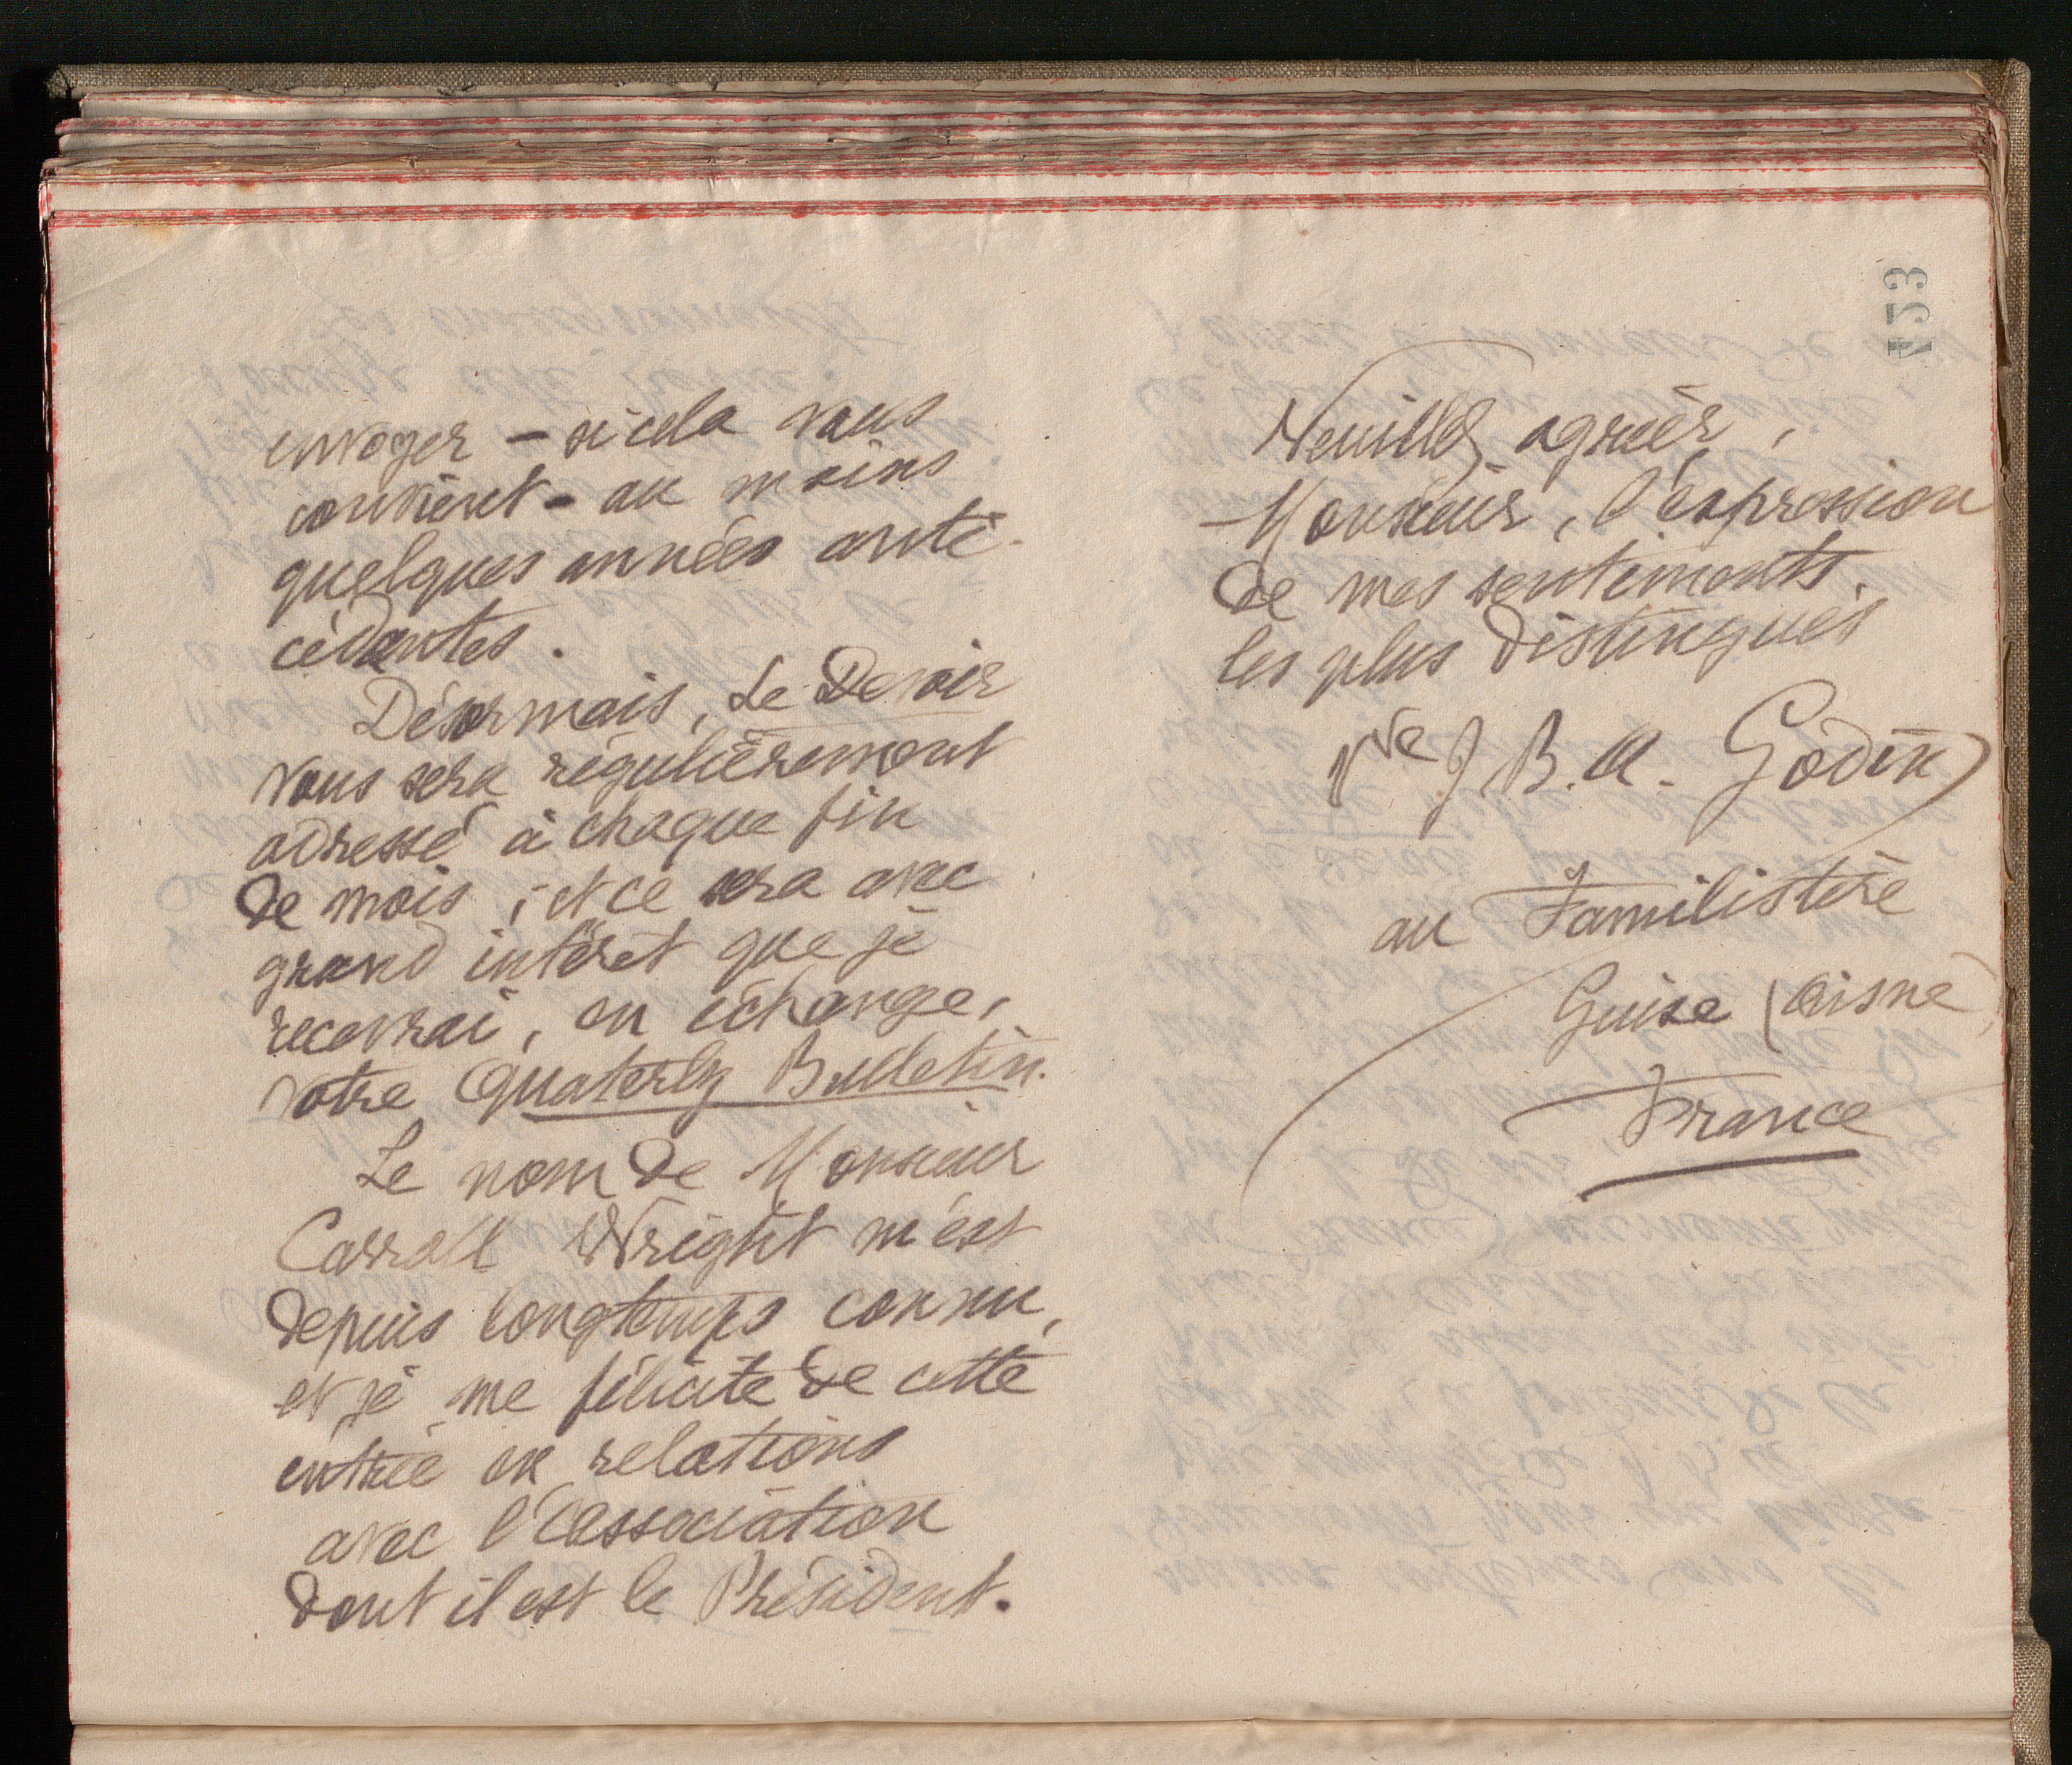 envoyer - si cela vous
convient - au moins
quelques années anté-
cédantes.
Désormais, Le Devoir
vous sera régulièrement
adressé à chaque fin
de mois ; et ce sera avec
grand intérêt que je
recevrai, en échange,
votre Quaterly Bulletin.
Le nom de Monsieur
Carroll Wright m'est
depuis longtemps connu,
et je me félicite de cette
entrée en relations
avec l'association
dont il est le Président.
453
Veuillez agréer,
Monsieur, l'expression
de mes sentiments
les plus distingués
Vve J. B. A. Godin
au Familistère
Guise (Aisne)
France